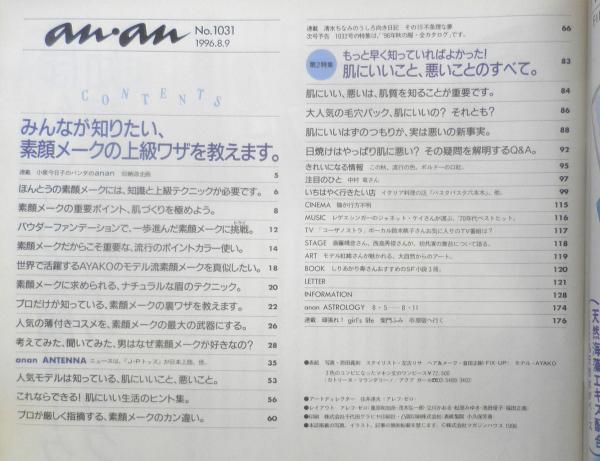 an・an
No.1031
1996.8.9
CONTENTS
みんなが知りたい、
素顔メークの上級ワザを教えます。
連載 小泉今日子のパンダのanan 5
ほんとうの素顔メークには、知識と上級テクニックが必要です。 6
素顔メークの重要ポイント、肌づくりを極めよう。 8
パウダーファンデーションで、一歩進んだ素顔メークに挑戦。 12
素顔メークだからこそ重要な、流行のポイントカラー使い。 14
世界で活躍するAYAKOのモデル流素顔メークを真似したい。 18
素顔メークに求められる、ナチュラルな眉のテクニック。 20
プロだけが知っている、素顔メークの裏ワザを教えます。 22
人気の薄付きコスメを、素顔メークの最大の武器にする。 26
考えてみた、聞いてみた、男はなぜ素顔メークが好きなの? 28
anan ANTENNA ニュースは、「J-Pトッズ」が日本上陸、他。 35
人気モデルは知っている、肌にいいこと、悪いこと。 53
これならできる! 肌にいい生活のヒント集。 56
プロが厳しく指摘する、素顔メークのカン違い。 60
連載 清水ちなみのうしろ向き日記 その15 不条理な夢 66
次号予告 1032号の特集は、「'96年秋の服・全カタログ」です。
第2特集
もっと早く知っていればよかった!
肌にいいこと、悪いことのすべて。 83
肌にいい、悪いは、肌質を知ることが重要です。 84
大人気の毛穴パック、肌にいいの? それとも? 86
肌にいいはずのつもりが、実は悪いの新事実。 88
日焼けはやっぱり肌に悪い? その疑問を解明するQ&A。 92
きれいになる情報 この秋、流行の色、ボルドーの口紅。 95
注目のひと 中村 竜さん 97
いちはやく行きたい店 イタリア料理の店「パスタパスタ六本木」、他。 99
CINEMA 狼か行方不明 115
MUSIC レゲエシンガーのジャネット・ケイさんが選ぶ、'70年代ベストヒット。 116
TV 「コーザ・ノストラ」ボーカル鈴木桃子さんお気に入りのTV番組は? 117
STAGE 斎藤晴彦さん、西島秀俊さんが、初共演の舞台について語る。 118
ART モデル紅純さんが魅かれる、大自然からのアート。 119
BOOK しりあがり寿さんおすすめのSF小説3冊。 120
LETTER 121
INFORMATION 128
anan ASTROLOGY 8・5――8・11 174
連載 頑張れ! girl's life 柴門ふみ 176
●表紙 スタイリスト・ ヘア&メーク・ (FIX-UP) モデル・AYAKO
3色のコンビになったマキシ丈のワンピース¥72,500
●アートディレクター
●レイアウト
●印刷